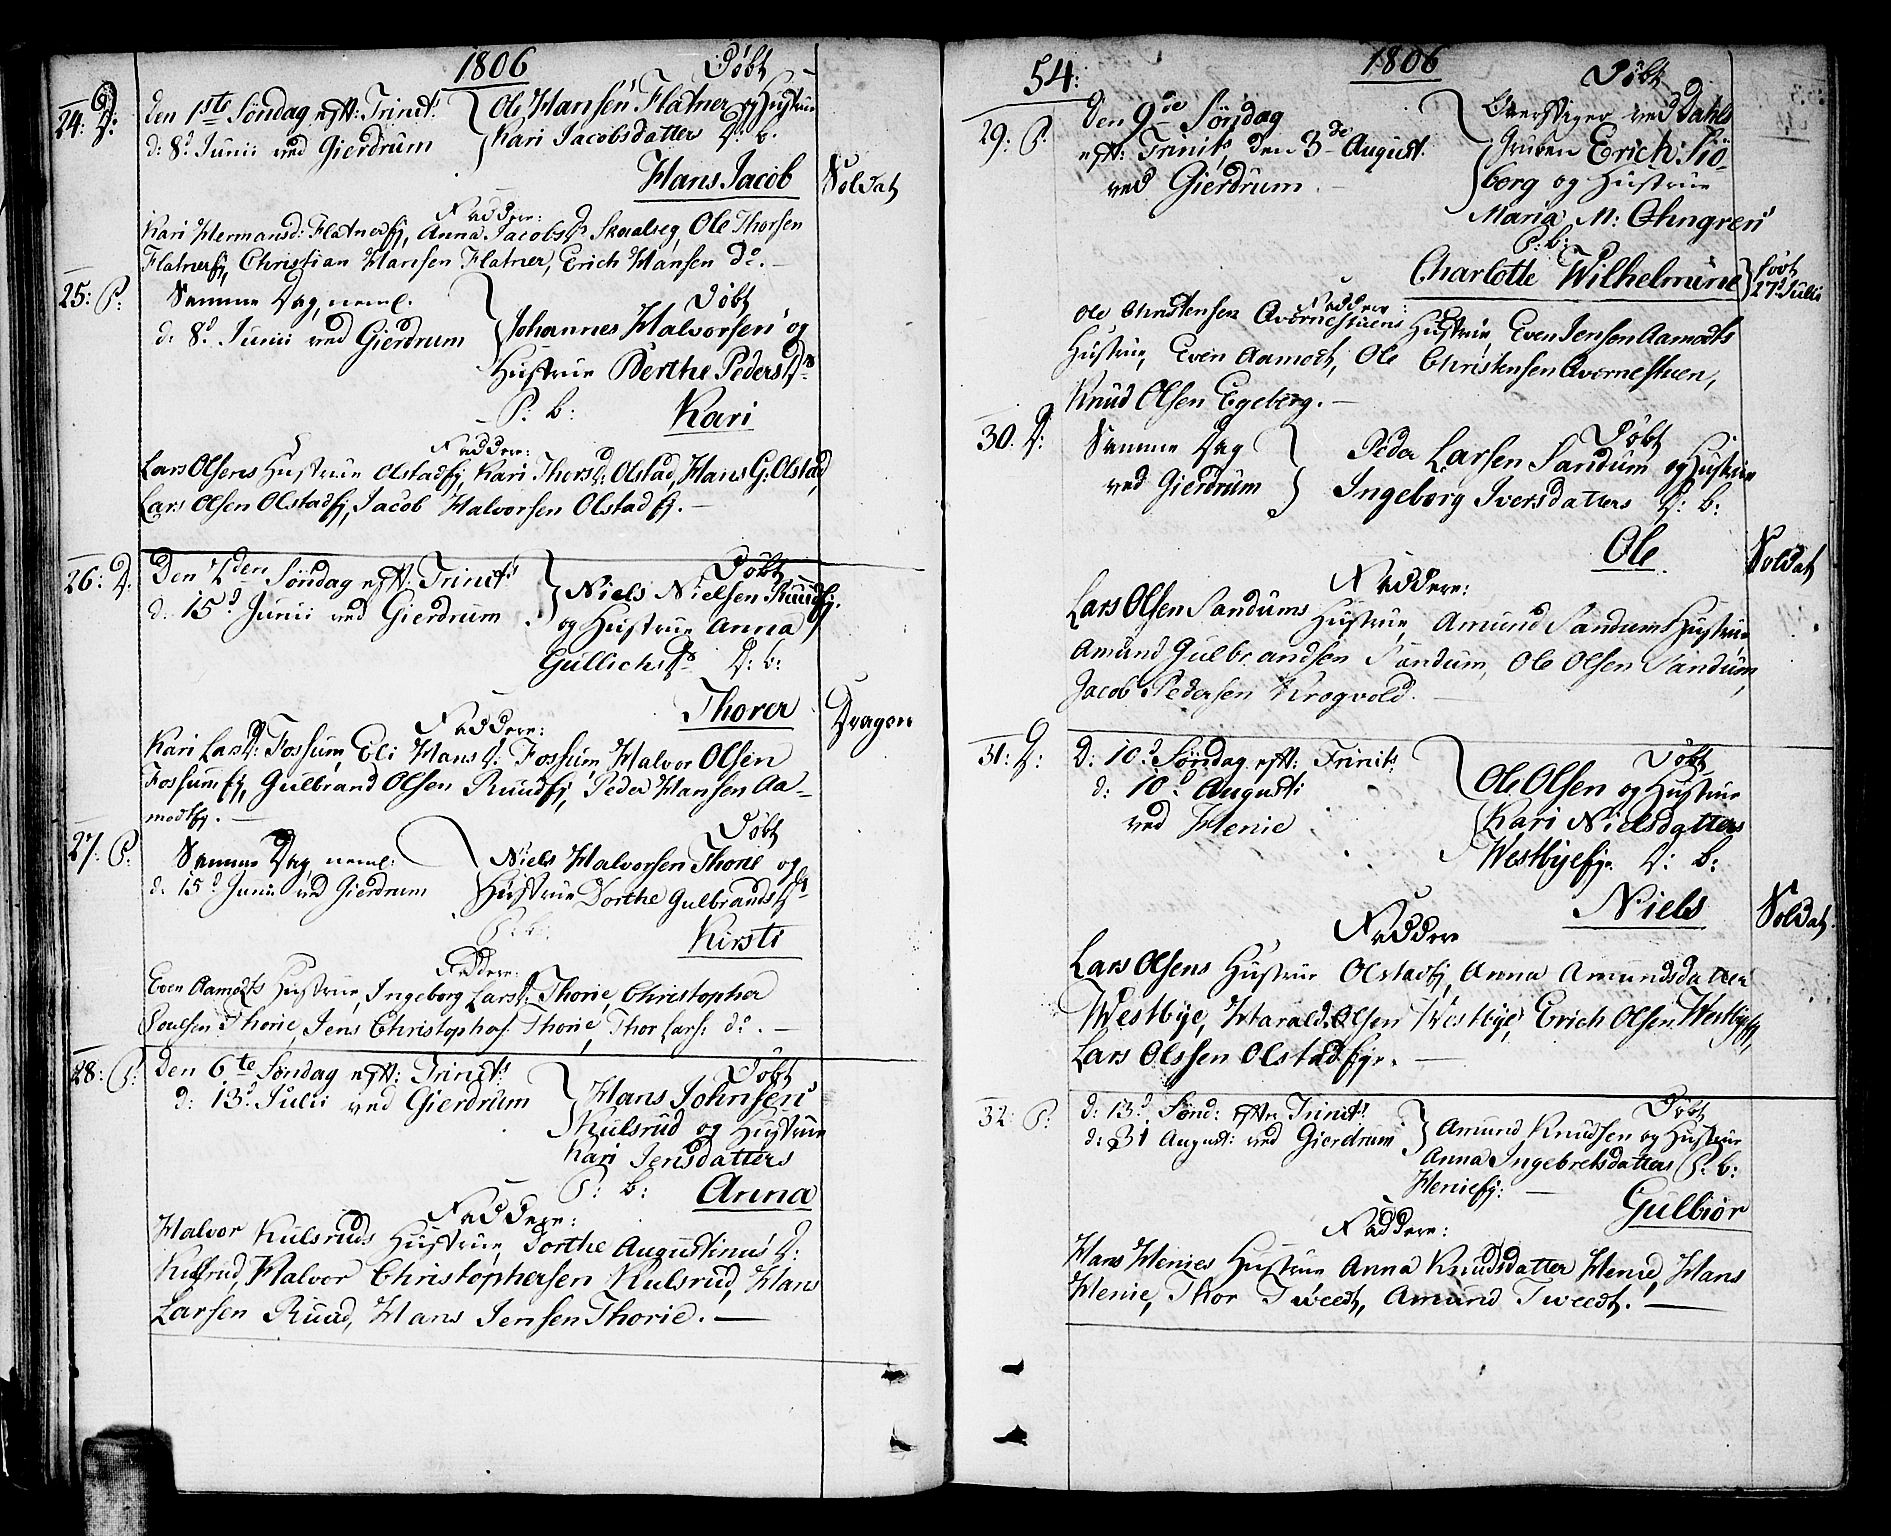 1806
Døbt
24: D: den 1ste Søndag eft: Trinit: Ole Hansen Flatner og Hustrue
d: 8d Junii ved Gierdrum Kari Jacobsdatter D: b:
Hans Jacob Soldat
Faddere:
Kari Hermansd: Flatnerfj, Anna Jacobs D: Skealseg, Ole Thorsen
Flatnerfj, Christian Hansen Flatner, Erich Hansen do. –
25: P: Samme Dag, neml. Døbt
d. 8d Junii ved Gierdrum Johannes Halvorsen og
Hustrue Berthe Peders Dr
P. b: Kari
Faddere:
Lars Olsens Hustrue Olstadfj, Kari Thors D: Olstad, Hans G: Olstad,
Lars Olsen Olstadfj, Jacob Halvorsen Olstadfj. –
26: D. Den 2den Søndag eft: Trinit: Døbt
d. 15d Junii ved Gierdrum Niels Nielsen Ruudfj.
og Hustrue Anna
Gullichs Dr D: b:
Thorer Dragon
Faddere:
Kari Las D: Fossum, Eli Hans D: Fossum, Halvor Olsen
Fossumfj, Gulbrand Olsen Ruudfj, Peder Hansen Aa-
modtfj. –
27: P. Samme Dag neml: Døbt
d. 15d Junii ved Gierdrum Niels Halvorsen Thorie og
Hustrue Dorthe Gulbrands Dr
P: b: Kirsti
Faddere:
Even Aamodts Hustrue, Ingeborg Lars D: Thorie, Christopher
Poulsen Thorie, Jens Christophs: Thorie, Thor Lars: do. –
28: P: Den 6te Søndag eft: Trinit: Døbt
d: 13d Julii ved Gierdrum Hans Johnsen
Kulsrud og Hustrue
Kari Jensdatters
P: b: Anna
Faddere:
Halvor Kulsruds Hustrue, Dorthe Augustinus D:
Kulsrud, Halvor Christophersen Kulsrud, Hans
Larsen Ruud, Hans Jensen Thorie. –
54: 1806
Døbt
29: P. Den 9de Søndag Overstiger ved Dahls
eft: Trinit: den 3de August. Gruben Erich Siö-
ved Gierdrum. – berg og Hustrue
Maria M: Öhngren
P: b:
Charlotte Wilhelmine født
27d Julii
Faddere:
Ole Christensen Qvernestuens Hustrue, Even Jensen Aamodts
Hustrue, Even Aamodt, Ole Christensen Qvernestuen,
Knud Olsen Egeberg. –
30. D: Samme Dag Døbt
ved Gierdrum Peder Larsen Sandum og Hustrue
Ingeborg Iversdatters D: b:
Ole Soldat
Faddere:
Lars Olsen Sandums Hustrue, Amund Sandums Hustrue,
Amund Gulbrandsen Sandum, Ole Olsen Sandum,
Jacob Pedersen Krogvold. –
31: D: D: 10d Søndag eft: Trinit: Døbt
d: 10d Augusti Ole Olsen og Hustrue
ved Henie Kari Nielsdatters
Westbyefj. D: b:
Niels Soldat
Faddere
Lars Olsens Hustrue Olstadfj, Anna Amundsdatter
Westbye, Harald Olsen Westbye, Erich Olsen Westbyefj,
Lars Olssen Olstadfj. –
32: P: d: 13d Sønd: efter Trinit: Døbt
d: 31 August: ved Gierdrum Amund Knudsen og Hustrue
Anna Ingebretsdatters P: b:
Heniefj: – Gulbiör
Faddere:
Hans Henies Hustrue Anna Knudsdatter Henie, Hans
Henie, Thor Tweedt, Amund Tweedt. –